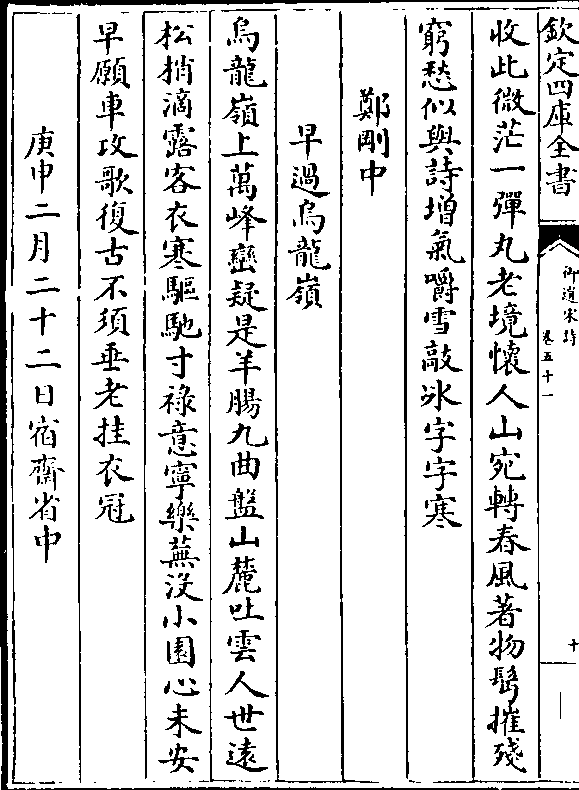 欽定四庫全書
御選宋詩
卷五十一
十
收此微茫一彈丸老境懷人山宛轉春風著物髩摧殘
窮愁似與詩增氣嚼雪敲冰字字寒
鄭剛中
早過烏龍嶺
烏龍嶺上萬峰巒疑是羊腸九曲盤山麓吐雲人世遠
松梢滴露客衣寒驅馳寸祿意寧樂蕪沒小園心未安
早願車攻歌復古不須垂老挂衣冠
庚申二月二十二日宿齋省中